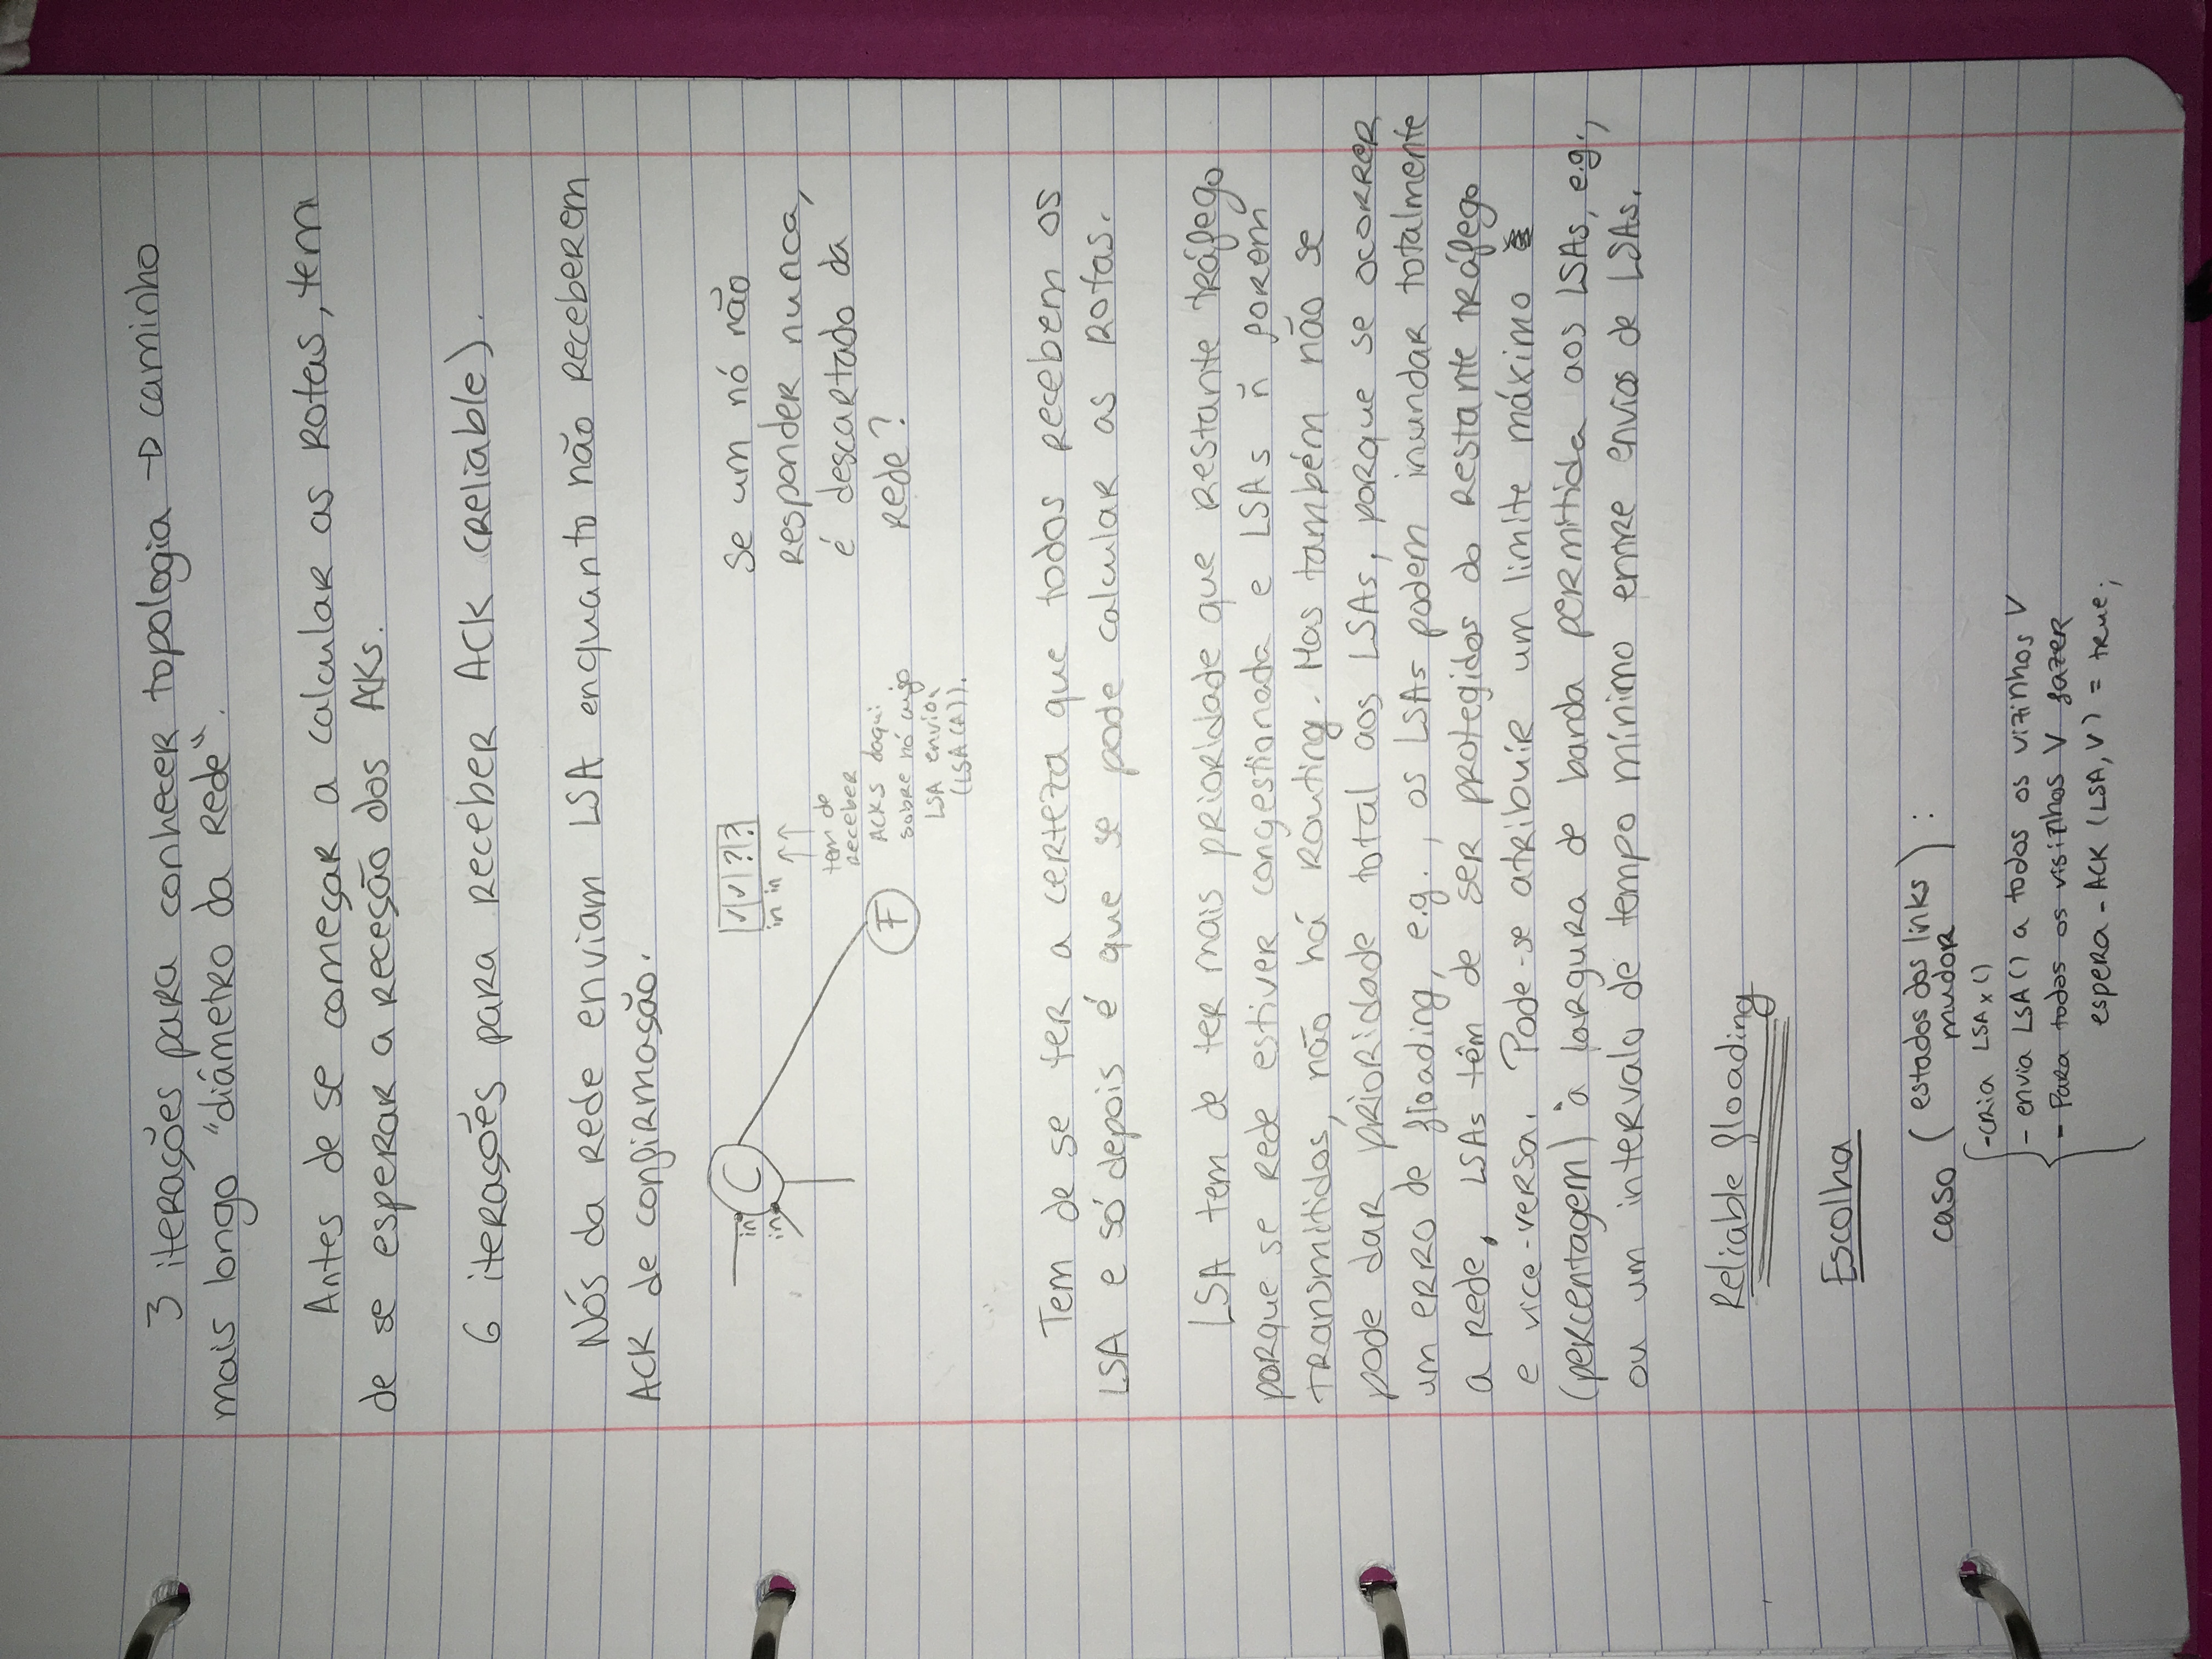 3 iterações para conhecer topologia → caminho
mais longo "diâmetro da rede".
Antes de se começar a calcular as rotas, tem
de se esperar a receção dos AKs.
6 iterações para receber ACK (reliable).
Nós da rede enviam LSA enquanto não receberem
ACK de confirmação.
C
in
in
✓ ✓ ? ?
in in
↑ ↑
tem de
receber
ACKS daqui
sobre nó cujo
LSA enviou
(LSA(A)).
F
Se um nó não
responder nunca,
é descartado da
rede?
Tem de se ter a certeza que todos recebem os
LSA e só depois é que se pode calcular as rotas.
LSA tem de ter mais prioridade que restante tráfego
porque se rede estiver congestionada e LSAs ñ forem
transmitidos, não há routing. Mas também não se
pode dar prioridade total aos LSAs, porque se ocorrer
um erro de floading, e.g., os LSAs podem inundar totalmente
a rede. LSAs têm de ser protegidos do restante tráfego
e vice-versa. Pode-se atribuir um limite máximo
(percentagem) à largura de banda permitida aos LSAs, e.g.,
ou um intervalo de tempo mínimo entre envios de LSAs.
Reliable floading
Escolha
caso (estados dos links
mudar) :
- cria LSAx()
- envia LSA() a todos os vizinhos V
- Para todos os visinhos V fazer
espera - ACK (LSA, V) = true;